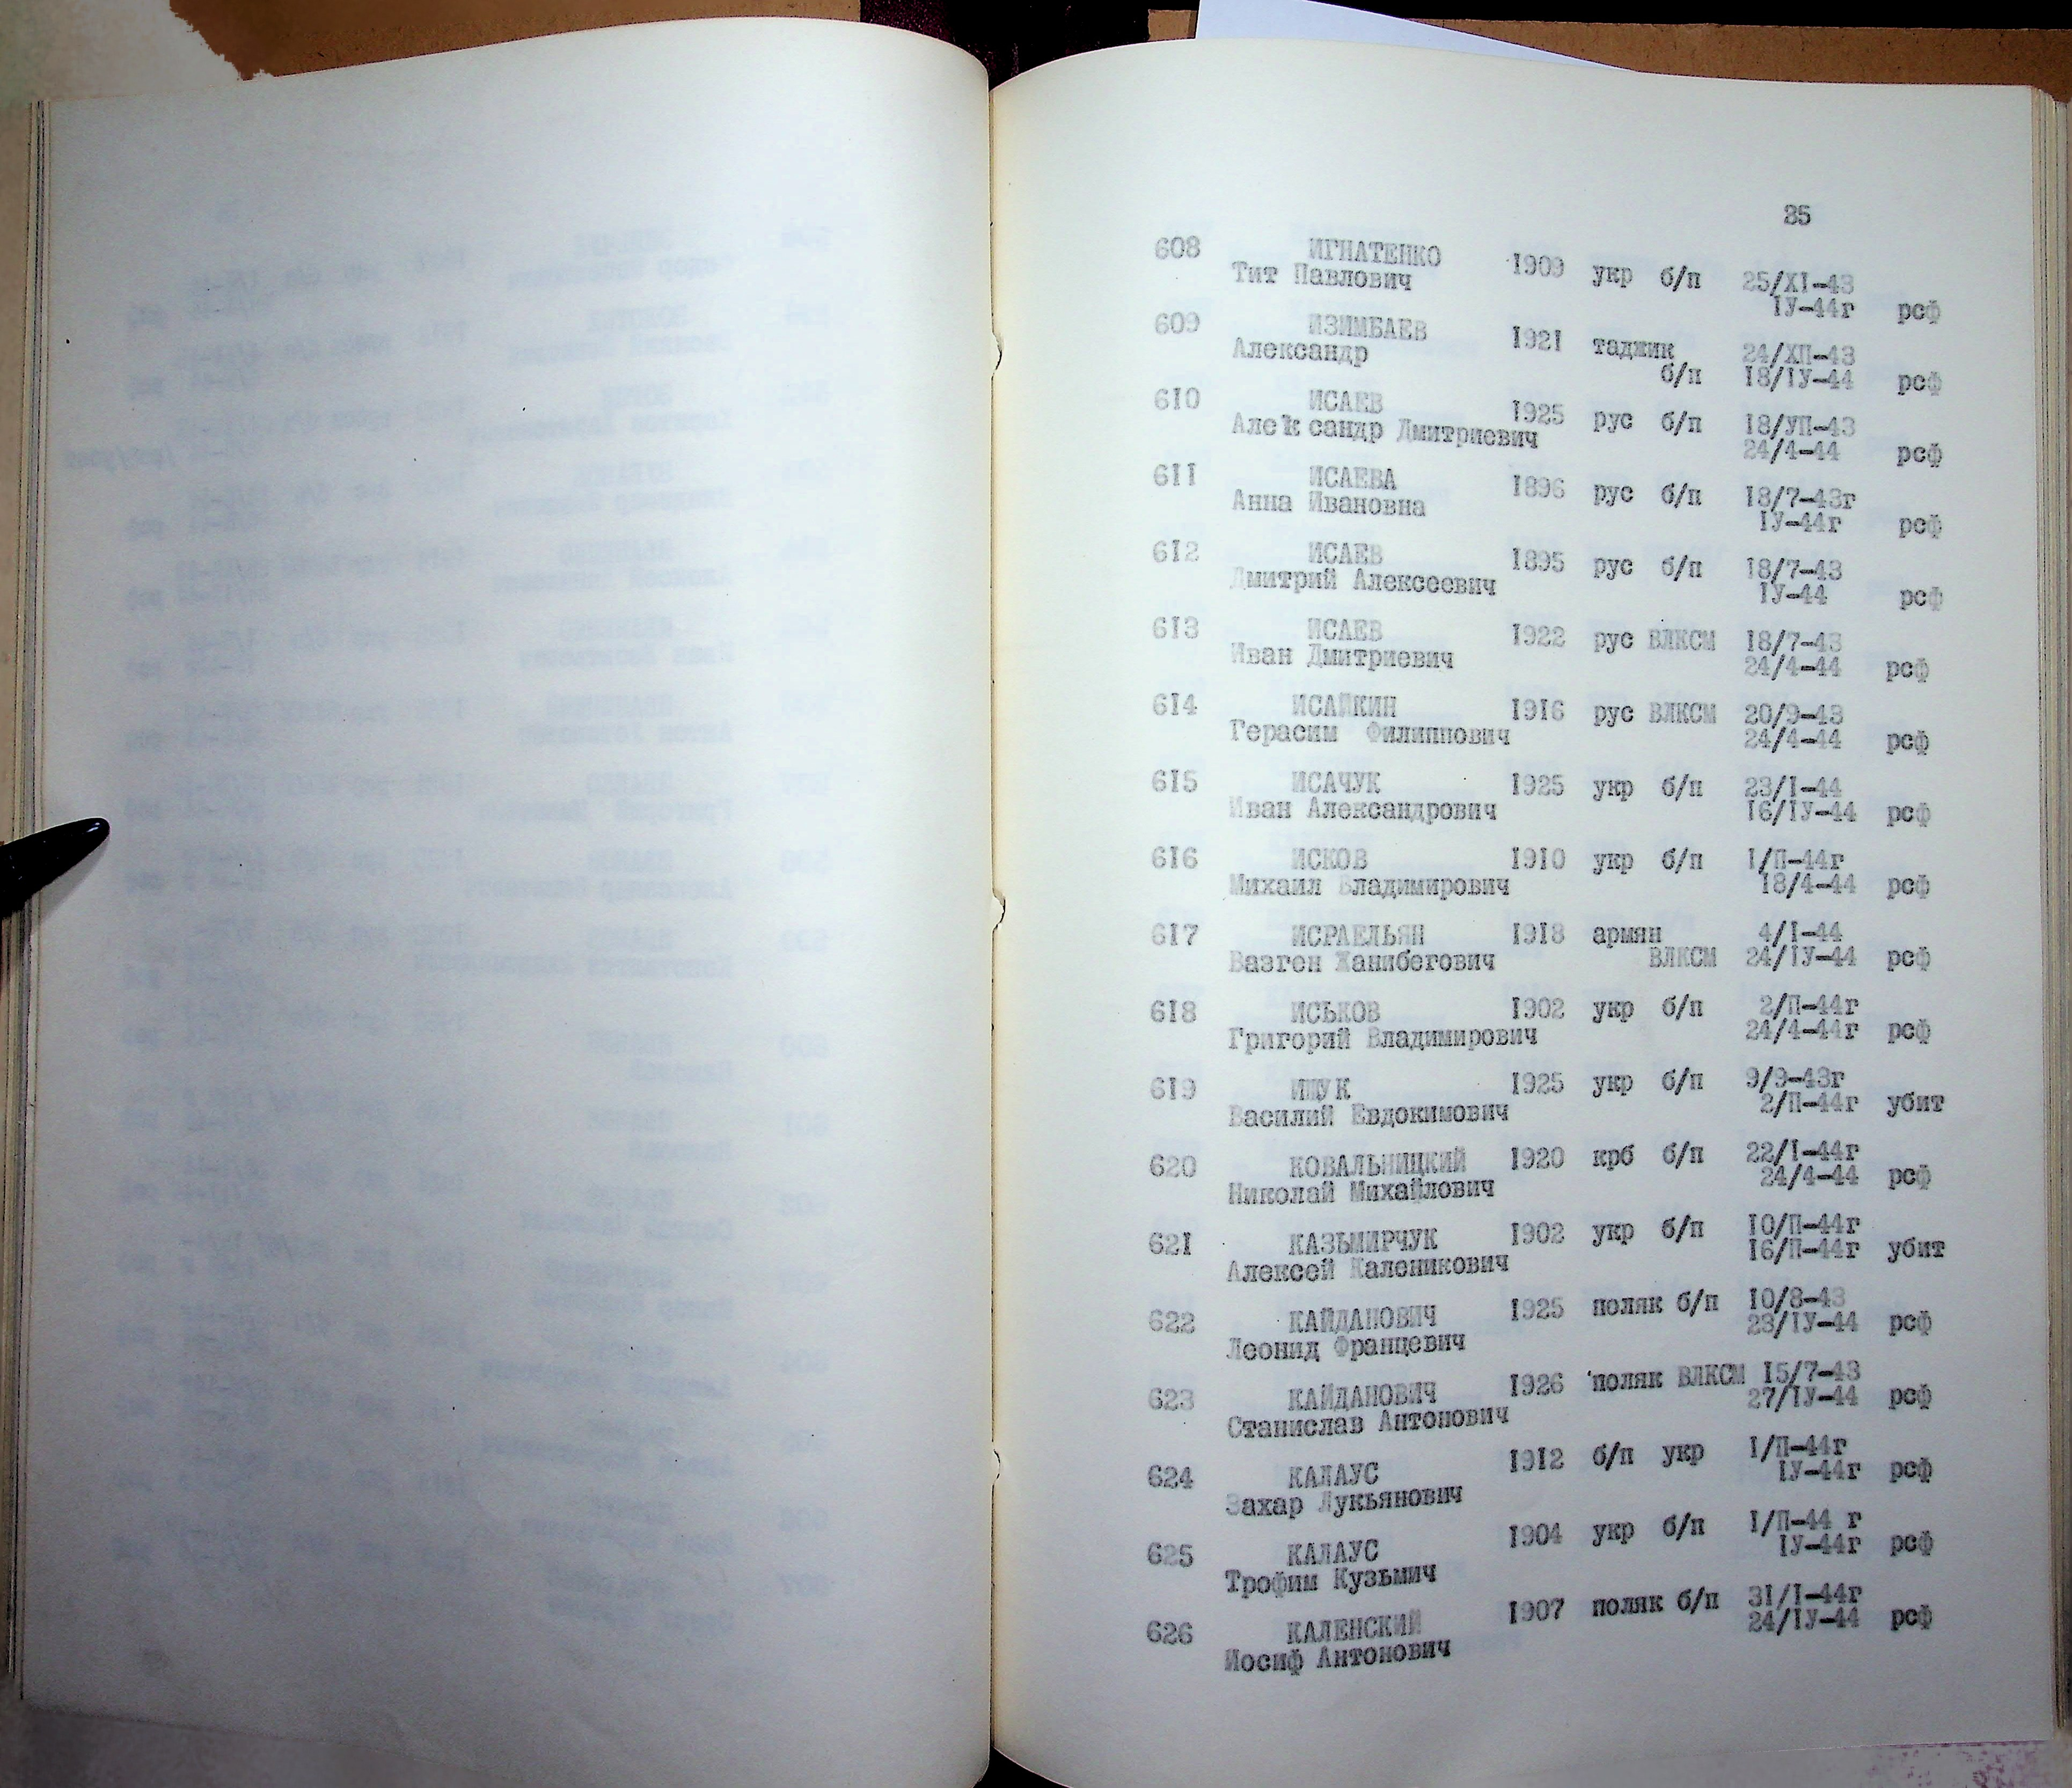 35
608 ИГНАТЕНКО 1909 укр б/п 25/XI-43
Тит Павлович IУ-44г рсф
609 ИЗИМБАЕВ 1921 таджик 24/ХП-43
Александр б/п 18/IУ-44 рсф
610 ИСАЕВ 1925 рус б/п 18/УП-43
Александр Дмитриевич 24/4-44 рсф
611 ИСАЕВА 1896 рус б/п 18/7-43г
Анна Ивановна IУ-44г рсф
612 ИСАЕВ 1895 рус б/п 18/7-43
Дмитрий Алексеевич IУ-44 рсф
613 ИСАЕВ 1922 рус ВЛКСМ 18/7-43
Иван Дмитриевич 24/4-44 рсф
614 ИСАЙКИН 1916 рус ВЛКСМ 20/9-43
Герасим Филиппович 24/4-44 рсф
615 ИСАЧУК 1925 укр б/п 23/I-44
Иван Александрович 16/IУ-44 рсф
616 ИСКОВ 1910 укр б/п 1/П-44г
Михаил Владимирович 18/4-44 рсф
617 ИСРАЕЛЬЯН 1918 армян 4/I-44
Вазген Ханибегович ВЛКСМ 24/IУ-44 рсф
618 ИСЬКОВ 1902 укр б/п 2/П-44г
Григорий Владимирович 24/4-44г рсф
619 ИЩУК 1925 укр б/п 9/9-43г
Василий Евдокимович 2/П-44г убит
620 КОВАЛЬНИЦКИЙ 1920 крб б/п 22/I-44г
Николай Михайлович 24/4-44 рсф
621 КАЗЬМИРЧУК 1902 укр б/п 10/П-44г
Алексей Каленикович 16/П-44г убит
622 КАЙДАНОВИЧ 1925 поляк б/п 10/8-43
Леонид Францевич 23/IУ-44 рсф
623 КАЙДАНОВИЧ 1926 поляк ВЛКСМ 15/7-43
Станислав Антонович 27/IУ-44 рсф
624 КАЛАУС 1912 б/п укр 1/П-44г
Захар Лукьянович IУ-44г рсф
625 КАЛАУС 1904 укр б/п 1/П-44 г
Трофим Кузьмич IУ-44г рсф
626 КАЛЕНСКИЙ 1907 поляк б/п 31/I-44г
Иосиф Антонович 24/IУ-44 рсф